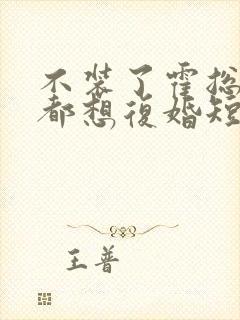 不装了霍总
都想復婚短
王普